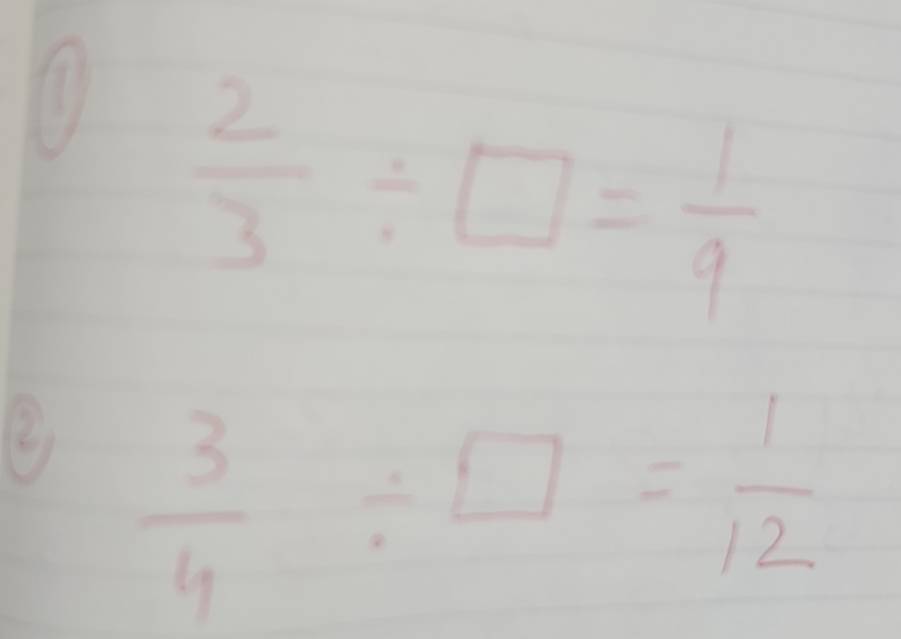 ① 2/3 ÷ □ = 1/9
② 3/4 ÷ □ = 1/12